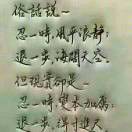 俗話說~
忍一時,風平浪靜;
退一步,海闊天空。
但現實卻是~
忍一時,變本加厲;
退一步,得寸進尺。